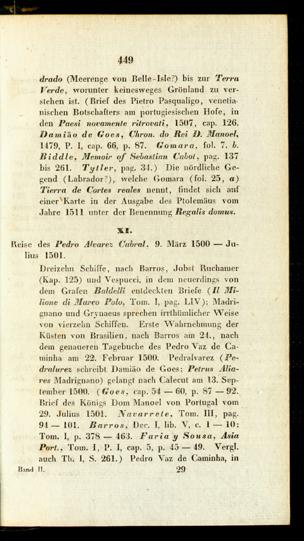 449
drado (Meerenge von Belle-Isle?) bis zur Terra
Verde, worunter keinesweges Grönland zu ver-
stehen ist. (Brief des Pietro Pasqualigo, venetia-
nischen Botschafters am portugiesischen Hofe, in
den Paesi novamente ritrovati, 1507, cap. 126.
Damião de Goes, Chron. do Rei D. Manoel,
1479, P. I, cap. 66, p. 87. Gomara, fol. 7. b.
Biddle, Memoir of Sebastian Cabot, pag. 137
bis 261. Tytler, pag. 34.) Die nördliche Ge-
gend (Labrador?), welche Gomara (fol. 25, a)
Tierra de Cortes reales nennt, findet sich auf
einer Karte in der Ausgabe des Ptolemäus vom
Jahre 1511 unter der Benennung Regalis domus.
XI.
Reise des Pedro Alvarez Cabral. 9. März 1500 — Ju-
lius 1501.
Dreizehn Schiffe, nach Barros, Jobst Ruchamer
(Kap. 125) und Vespucci, in dem neuerdings von
dem Grafen Baldelli entdeckten Briefe (Il Mi-
lione di Marco Polo, Tom. I, pag. LIV); Madri-
gnano und Grynaeus sprechen irrthümlicher Weise
von vierzehn Schiffen. Erste Wahrnehmung der
Küsten von Brasilien, nach Barros am 24., nach
dem genaueren Tagebuche des Pedro Vaz de Ca-
minha am 22. Februar 1500. Pedralvarez (Pe-
dralurez schreibt Damião de Goes; Petrus Alia-
res Madrignano) gelangt nach Calecut am 13. Sep-
tember 1500. (Goes, cap. 54 — 60, p. 87 — 92.
Brief des Königs Dom Manoel von Portugal vom
29. Julius 1501. Navarrete, Tom. III, pag.
94 — 101. Barros, Dec. I, lib. V, c. 1 — 10;
Tom. I, p. 378 — 463. Faria y Sousa, Asia
Port., Tom. I, P. I, cap. 5, p. 45 — 49. Vergl.
auch Th. I, S. 261.) Pedro Vaz de Caminha, in
Band II. 29